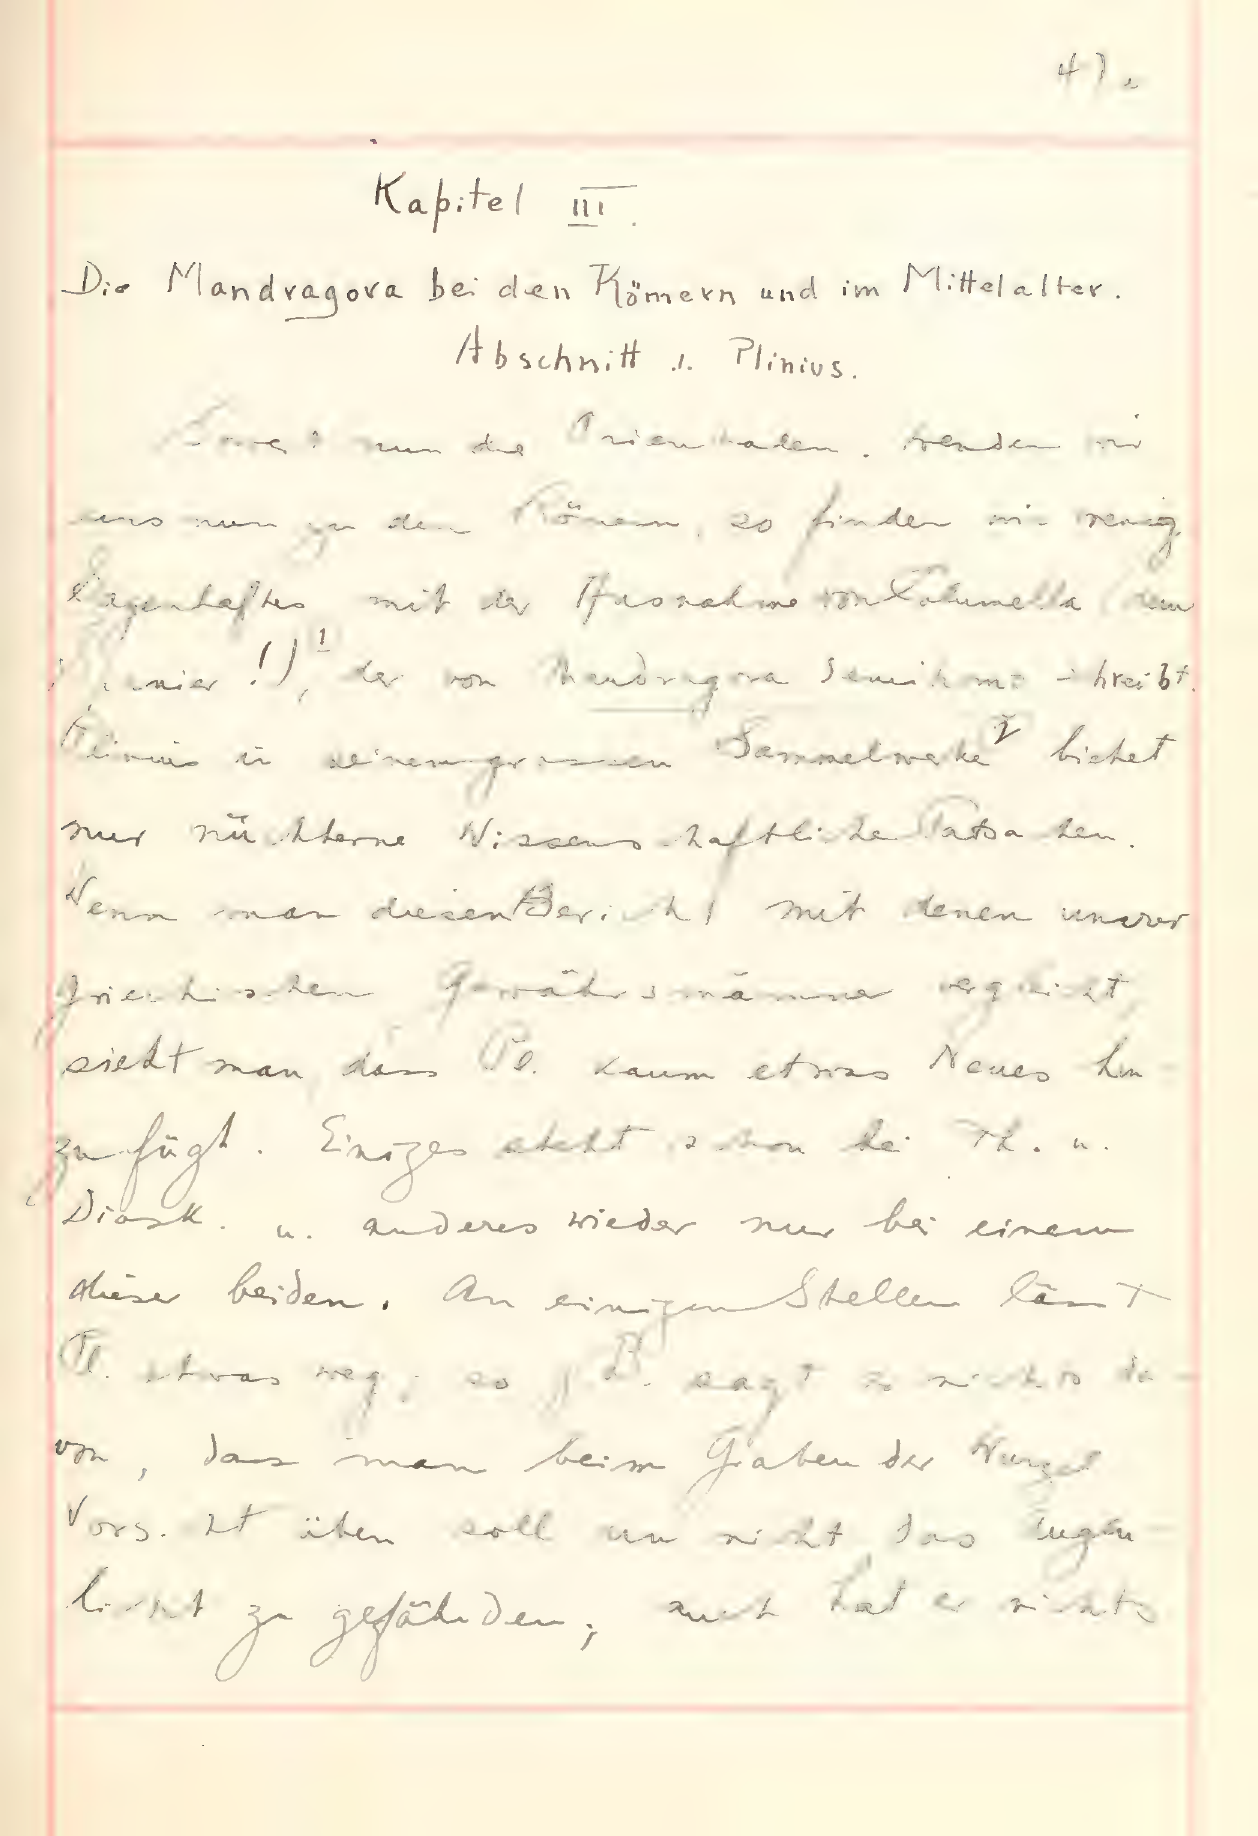 47.
Kapitel III.
Die Mandragora bei den Römern und im Mittelalter.
Abschnitt 1. Plinius.
Soweit nun die Orientalen. Wenden wir
uns nun zu den Römern, so finden wir wenig
Sagenhaftes mit der Ausnahme von Columella (dem
Spanier!)¹, der von Mandragora Semihomo schreibt.
Plinius in seinem grossen Sammelwerke² bietet
nur nüchterne Wissenschaftliche Tatsachen.
Wenn man diesen Bericht mit denen unsrer
griechischen Gewährsmänner vergleicht,
sieht man, dass Pl. kaum etwas Neues hin-
zufügt. Einiges steht schon bei Th. u.
Diosk. u. anderes wieder nur bei einem
dieser beiden. An einigen Stellen lässt
Pl. etwas weg; so z.B. sagt er nichts da-
von, dass man beim Graben der Wurzel
Vorsicht üben soll um nicht das Augen-
licht zu gefährden; auch hat er nichts